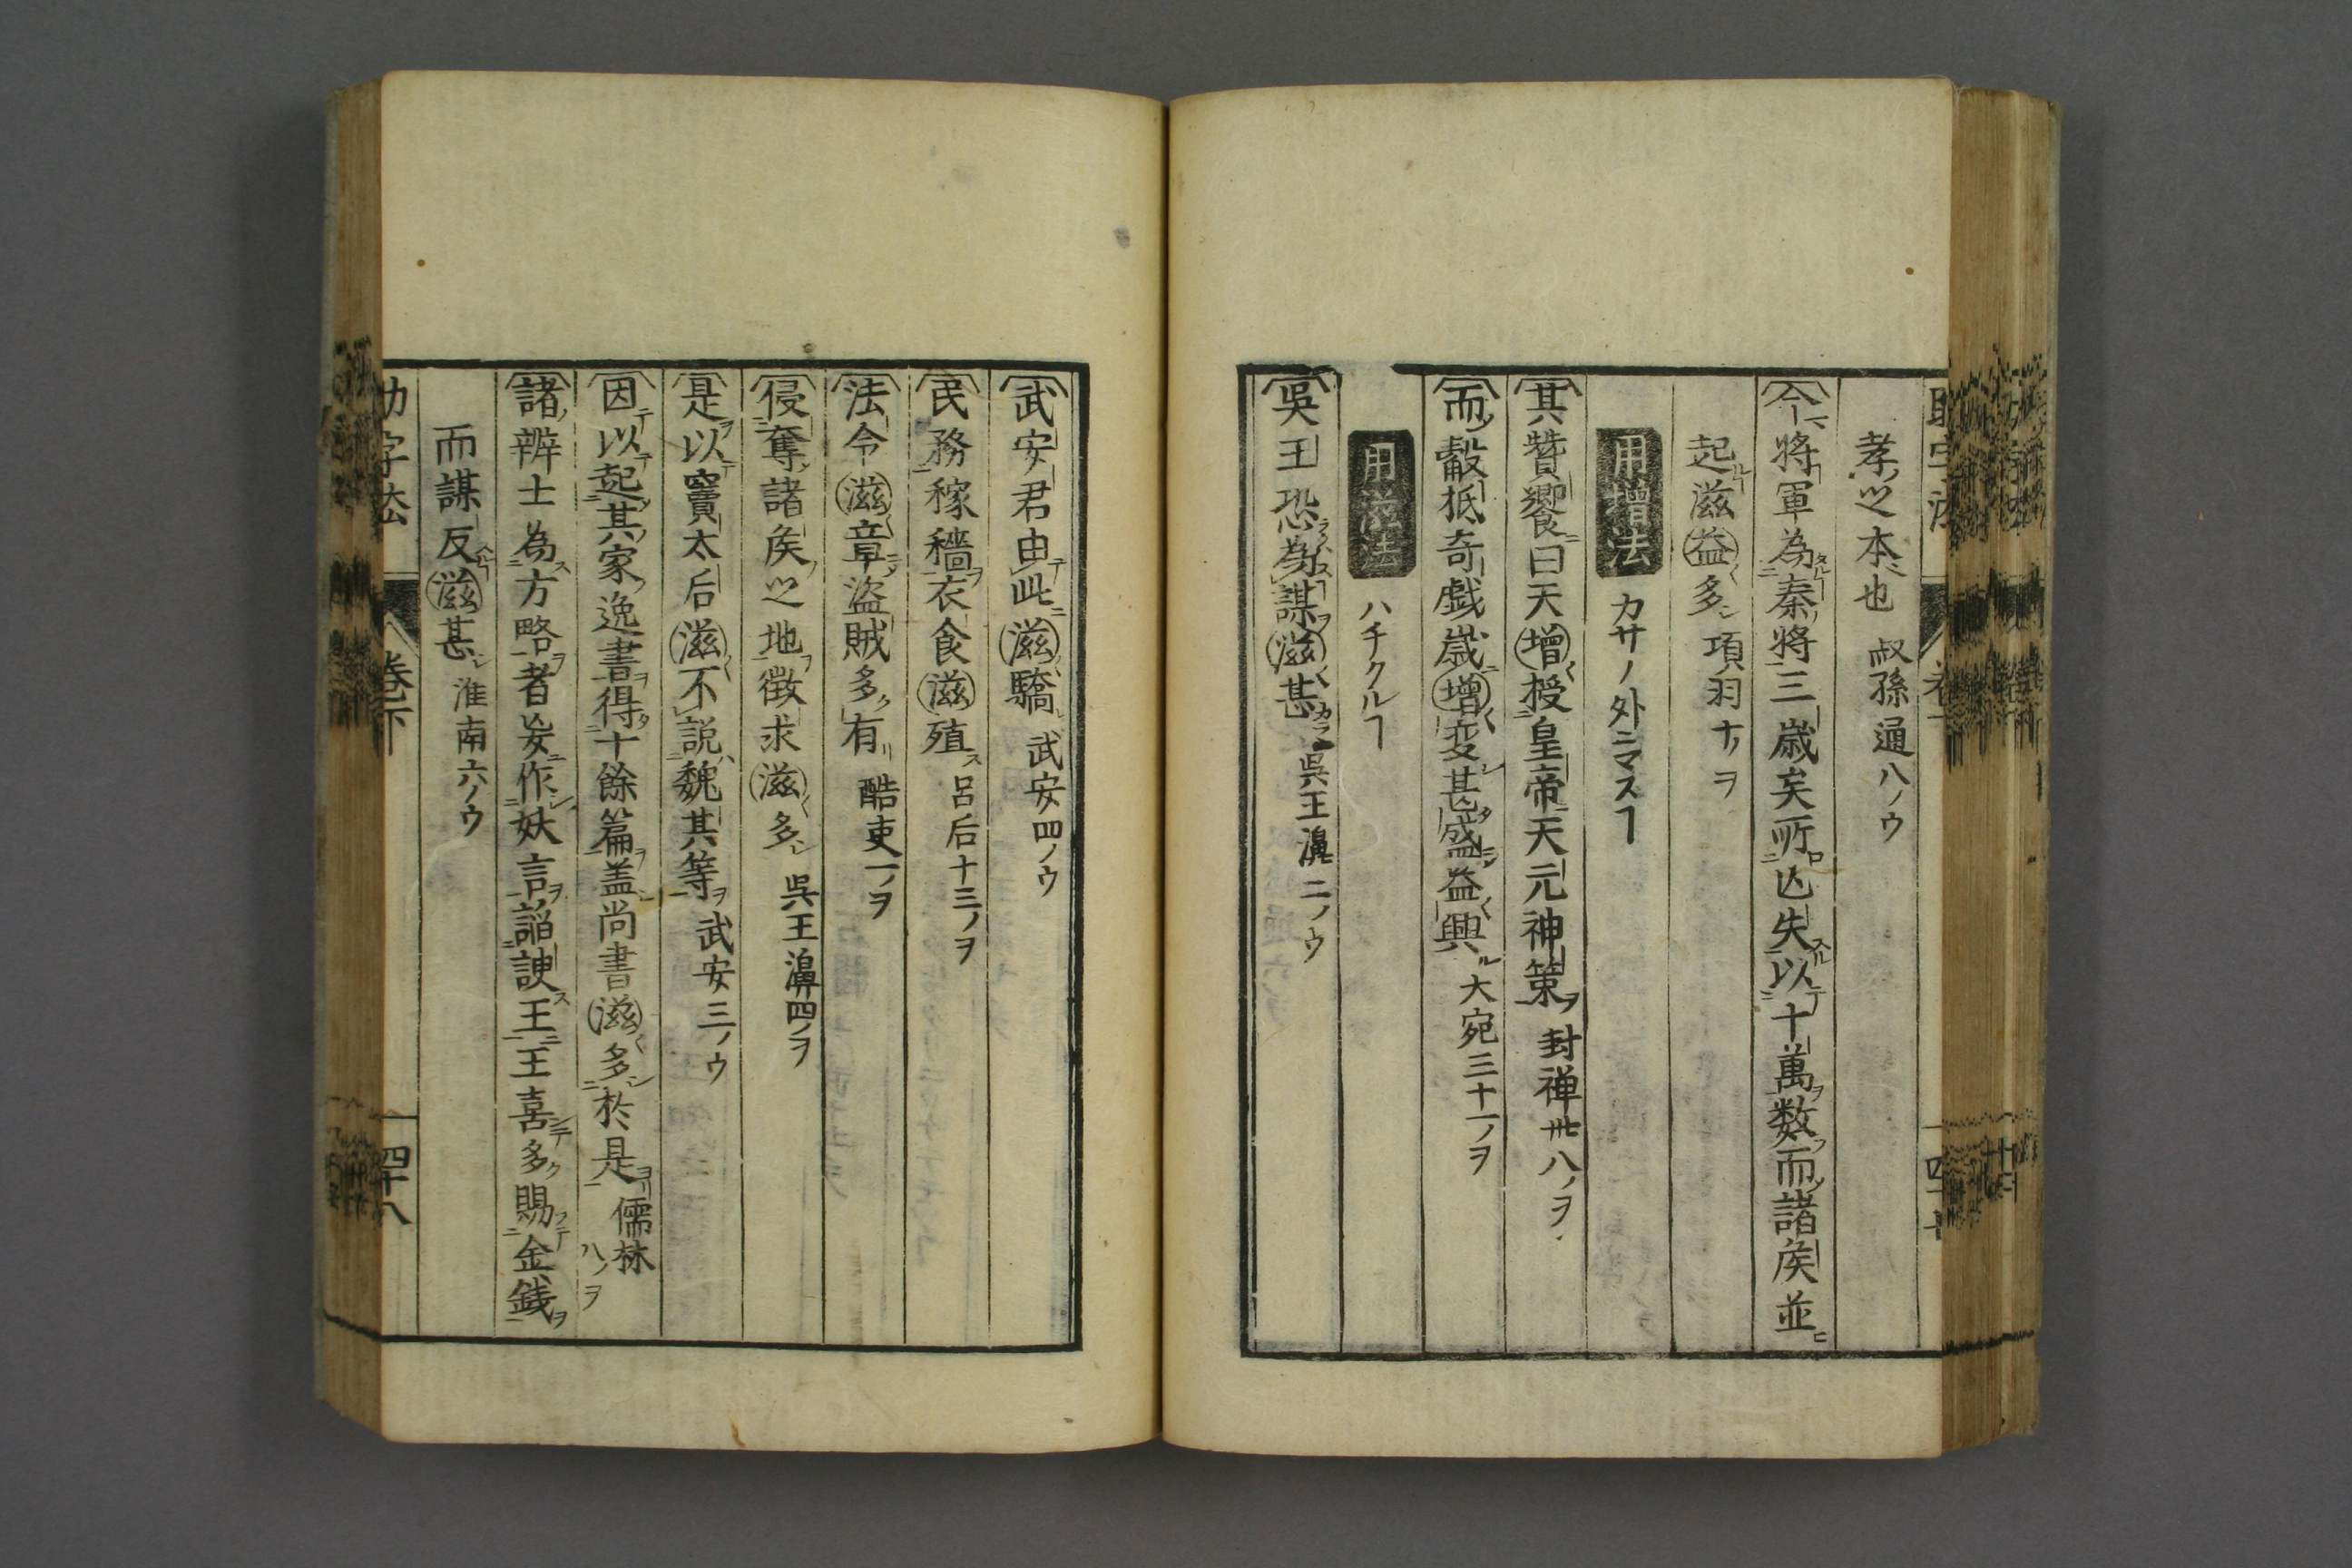 孝之本也 叔孫通八ノウ
今將軍為秦將三歳矣所亡失以十萬数而諸侯並
起滋益多 項羽十ノヲ
用増法 カサノ外ニマスヿ
其贊饗曰天増授皇帝天元神策 封禅卅八ノヲ
而觳抵奇戯歳増変甚盛益興 大宛三十一ノヲ
用滋法 ハチクルヿ
呉王恐為謀滋甚 呉王濞二ノウ
武安君由此滋驕 武安四ノウ
民務稼穡衣食滋殖 呂后十三ノヲ
法令滋章盗賊多有 酷吏一ノヲ
侵奪諸侯之地徴求滋多 呉王濞四ノヲ
是以竇太后滋不説魏其等 武安三ノウ
因以起其家逸書得十餘篇盖尚書滋多於是 儒林八ノヲ
諸辨士為方略者妄作妖言謟諛王王喜多賜金銭
而謀反滋甚 淮南六ノウ
助字法 卷下 四十八